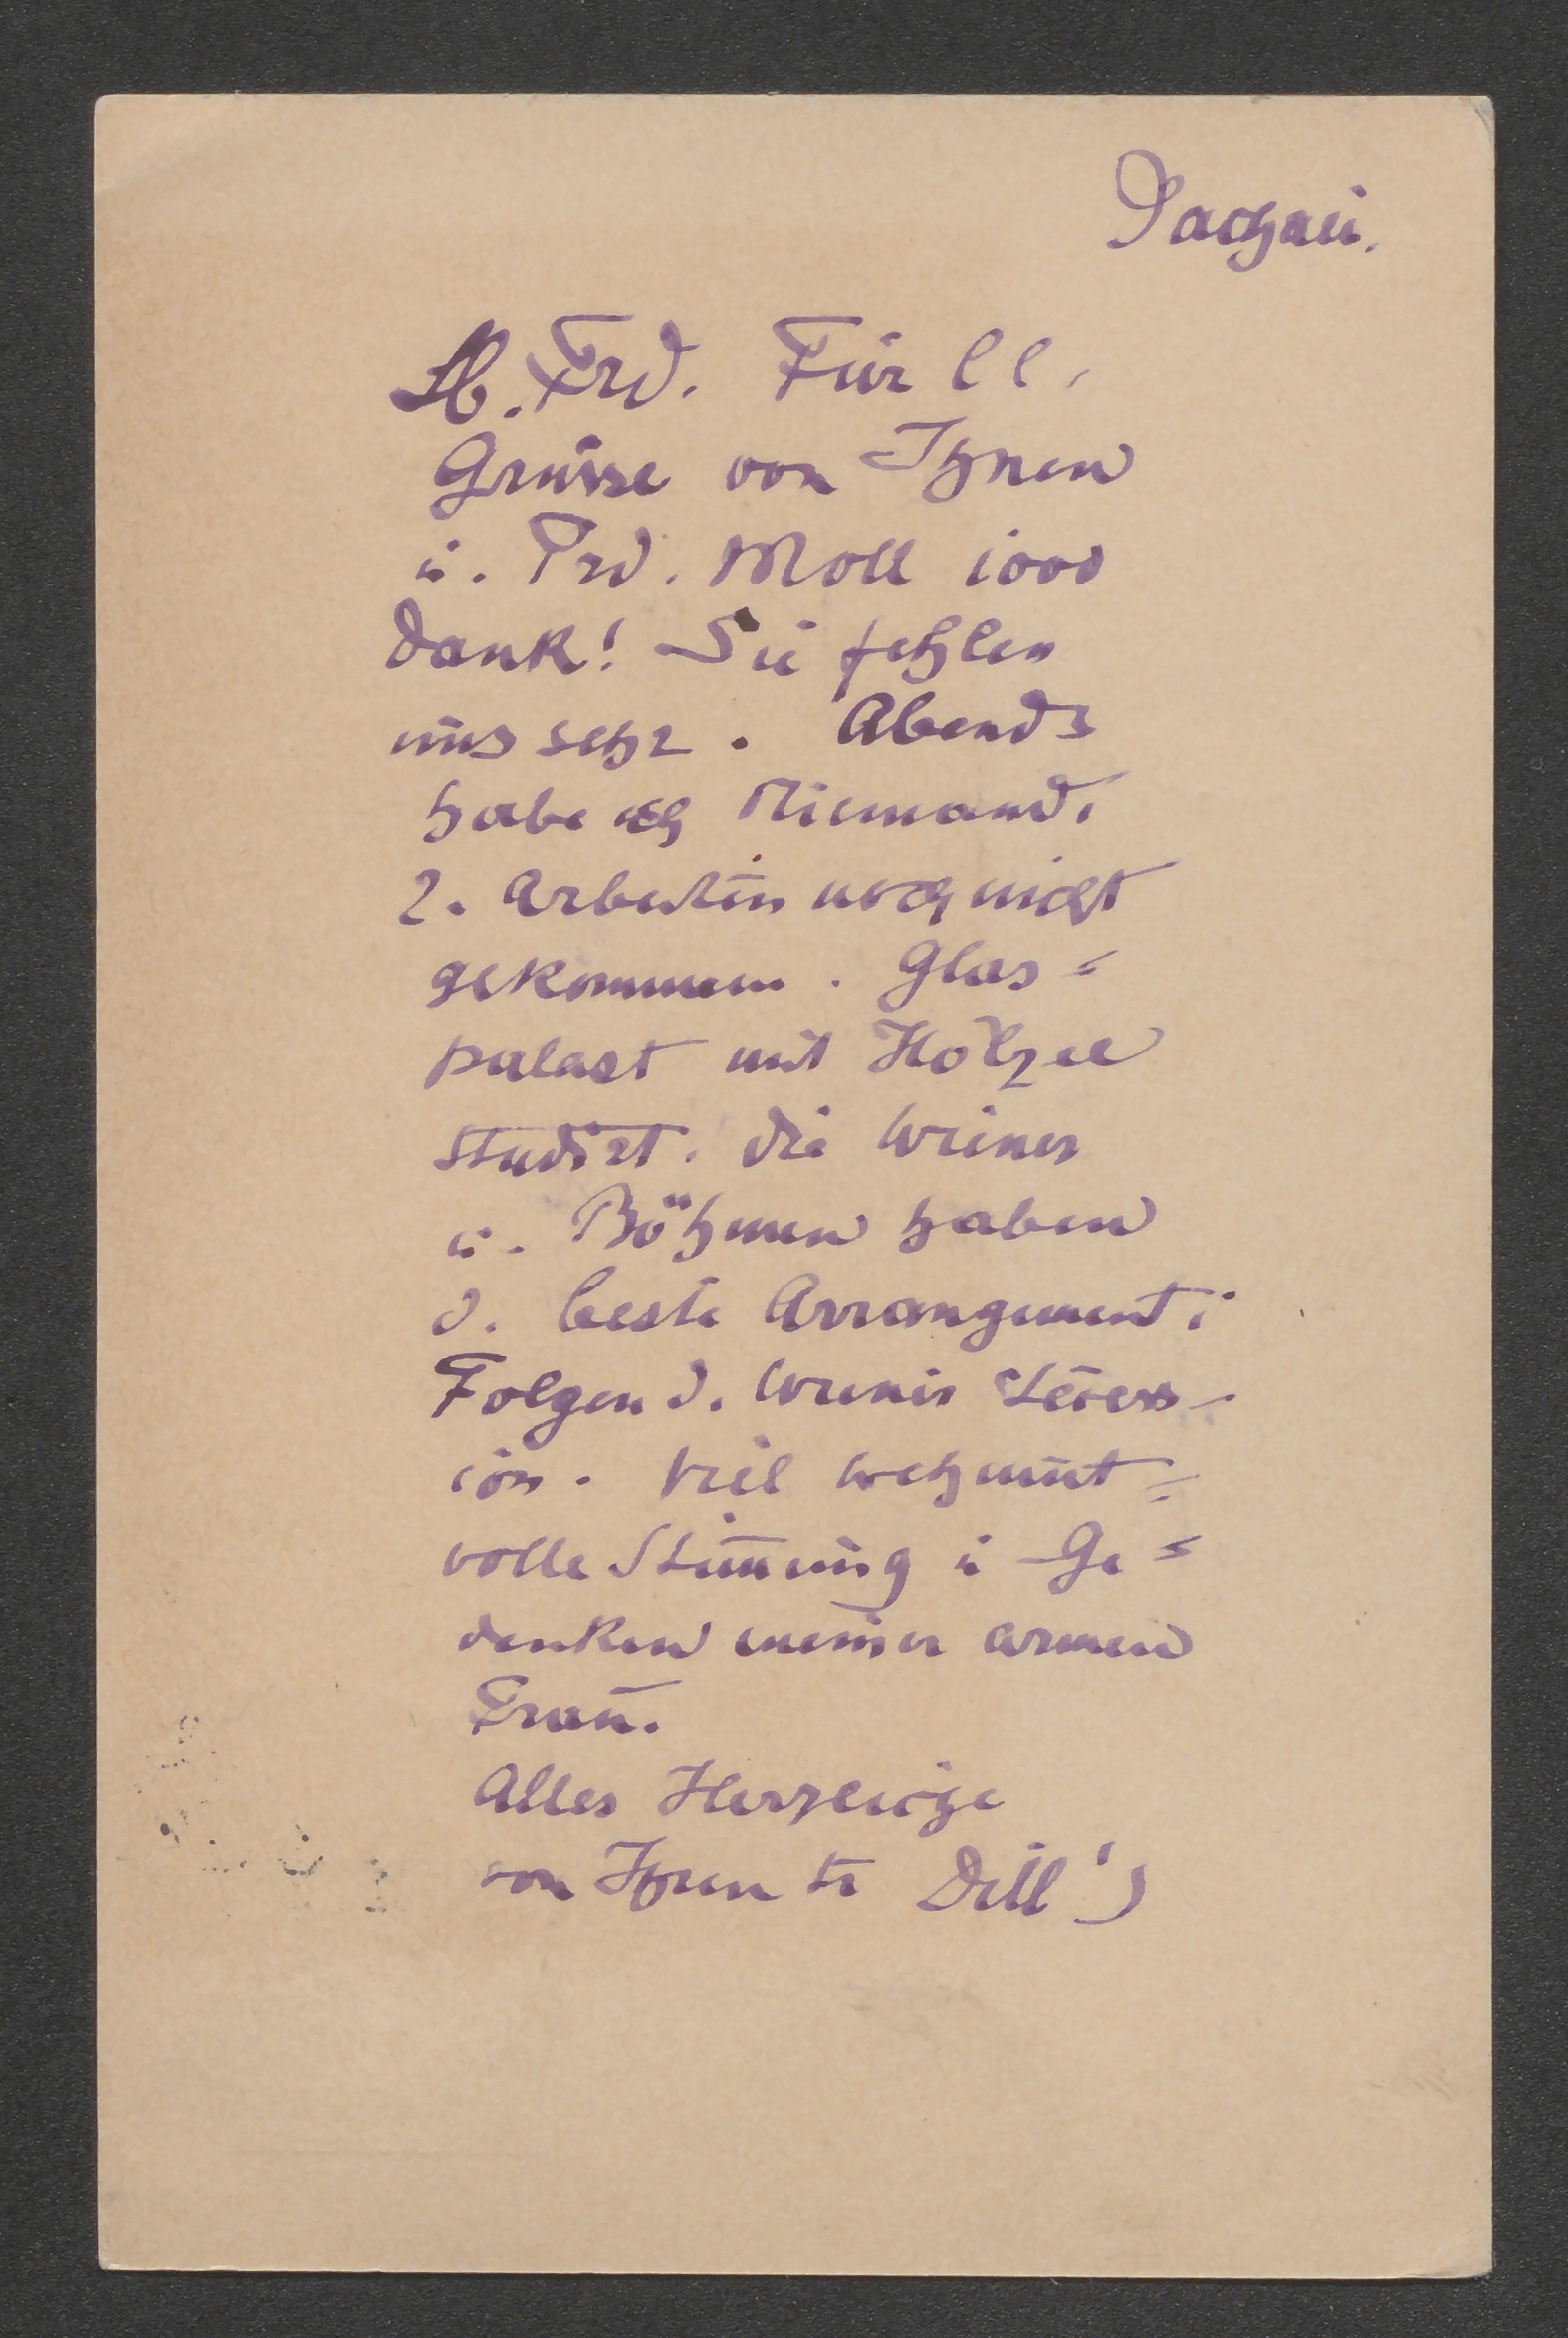 Dachau.
Lb. Frd. Für ll.
Grüsse von Ihnen
u. Frd. Moll 1000
Dank! Sie fehlen
uns sehr. Abends
habe ich Niemand.
Z. Arbeiten noch nicht
gekommen. Glas=
palast mit Hölzel
studirt. Die Wiener
u. Böhmen haben
d. beste Arrangement;
Folgen d. Wiener Secess-
ion. Viel wehmut=
volle Stimmung i Ge=
denken meiner armen
Frau.
Alles Herzliche
von Ihrem tr Dill